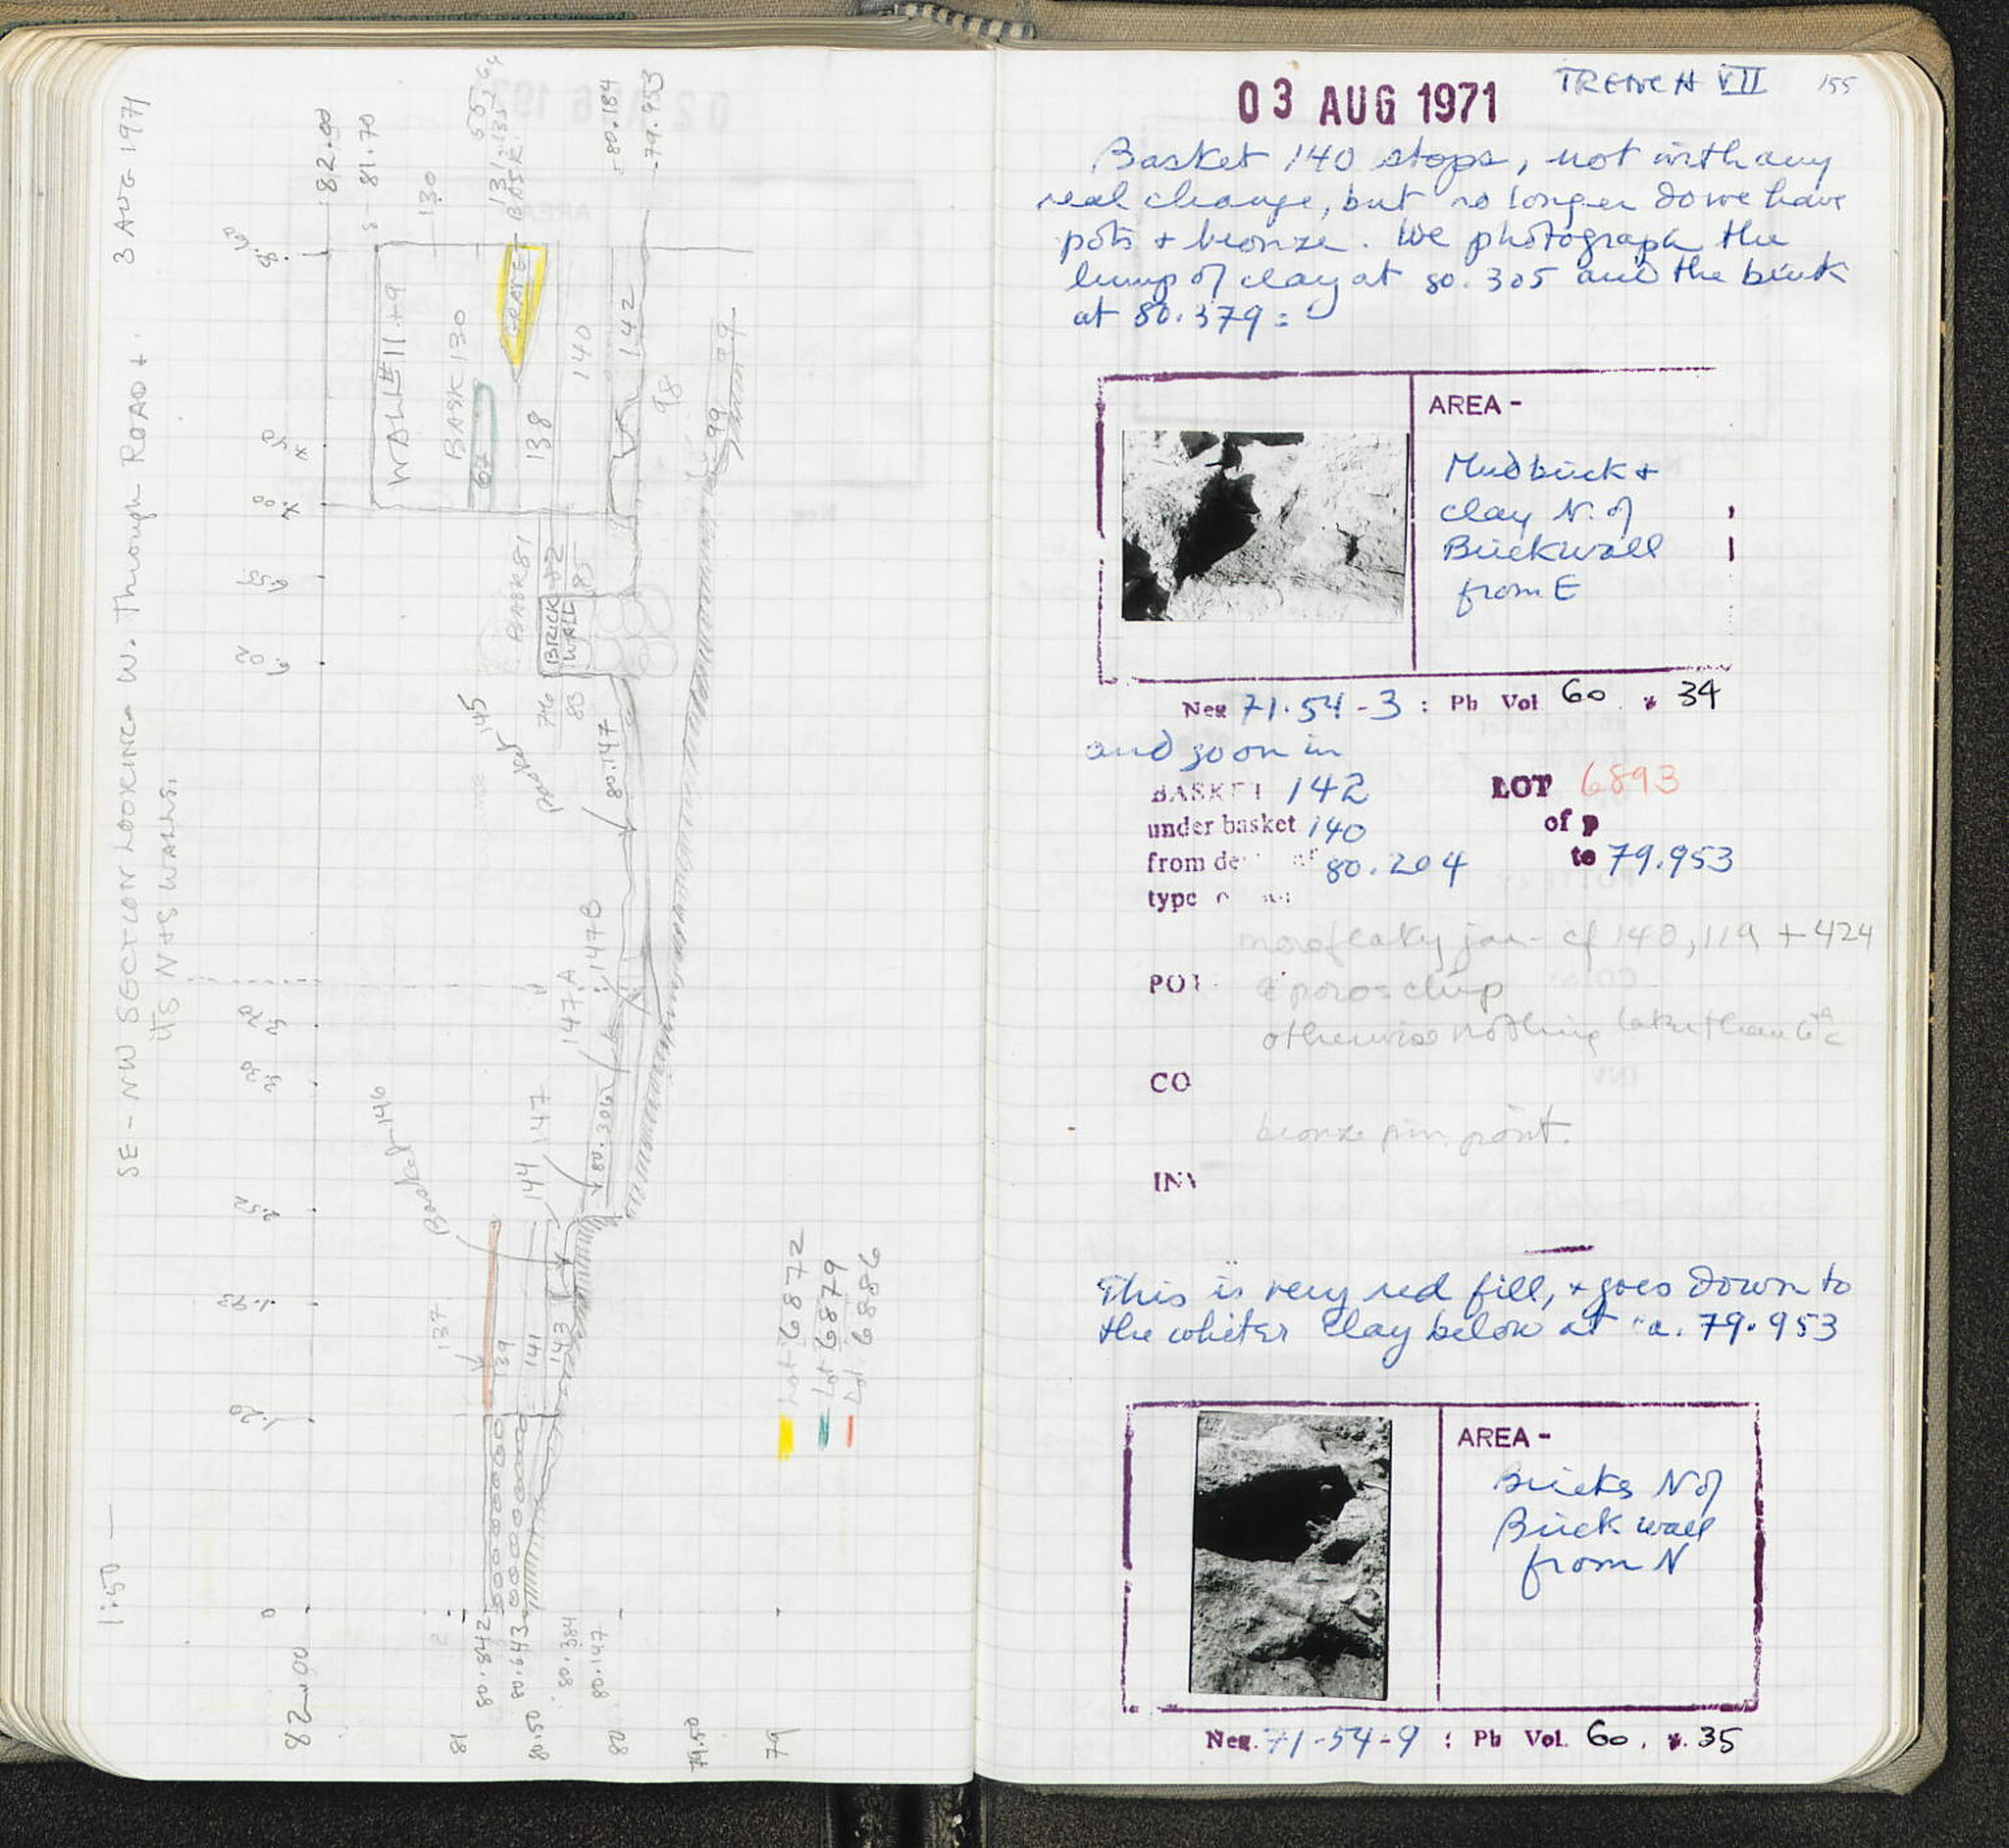 3 AUG 1971
SE - NW SECTION LOOKING W. Through ROAD +
ITS N + S WALLS.
1:50
82.00
81.70
130
131, 135
BASK.
80.184
79.953
8.60
7.40
7.00
6.55
6.02
3.70
3.30
2.52
1.93
1.20
0
WALLS 11 + 9
BASK 130
67
GRATE
138
140
142
98
99
BASK 81
BRICK
WALL
82
85
76
83
Basket 145
80.147
147B
147A
80.306
147
144
Basket 146
137
139
141
143
Lot 6872
Lot 6879
Lot 6886
82.00
81
80.842
80.643
80.50
80.384
80.147
80
79.50
79
03 AUG 1971
TRENCH VII
155
Basket 140 stops, not with any
real change, but no longer do we have
pots + bronze. We photograph the
lump of clay at 80.305 and the brick
at 80.379 =
AREA -
Mudbrick +
clay N. of
Brickwall
from E
Neg 71.54-3 : Ph Vol 60 . 34
and go on in
BASKET 142 LOT 6893
under basket 140 of p
from de of 80.204 to 79.953
type
more flaky jar - cf 140, 119 + 424
POT
a poros chip
otherwise nothing later than 6th c
CO
bronze pin point.
INV
This is very red fill, + goes down to
the whiter clay below at ca. 79.953
AREA -
Bricks N of
Brick wall
from N
Neg. 71-54-9 : Ph Vol. 60, 35